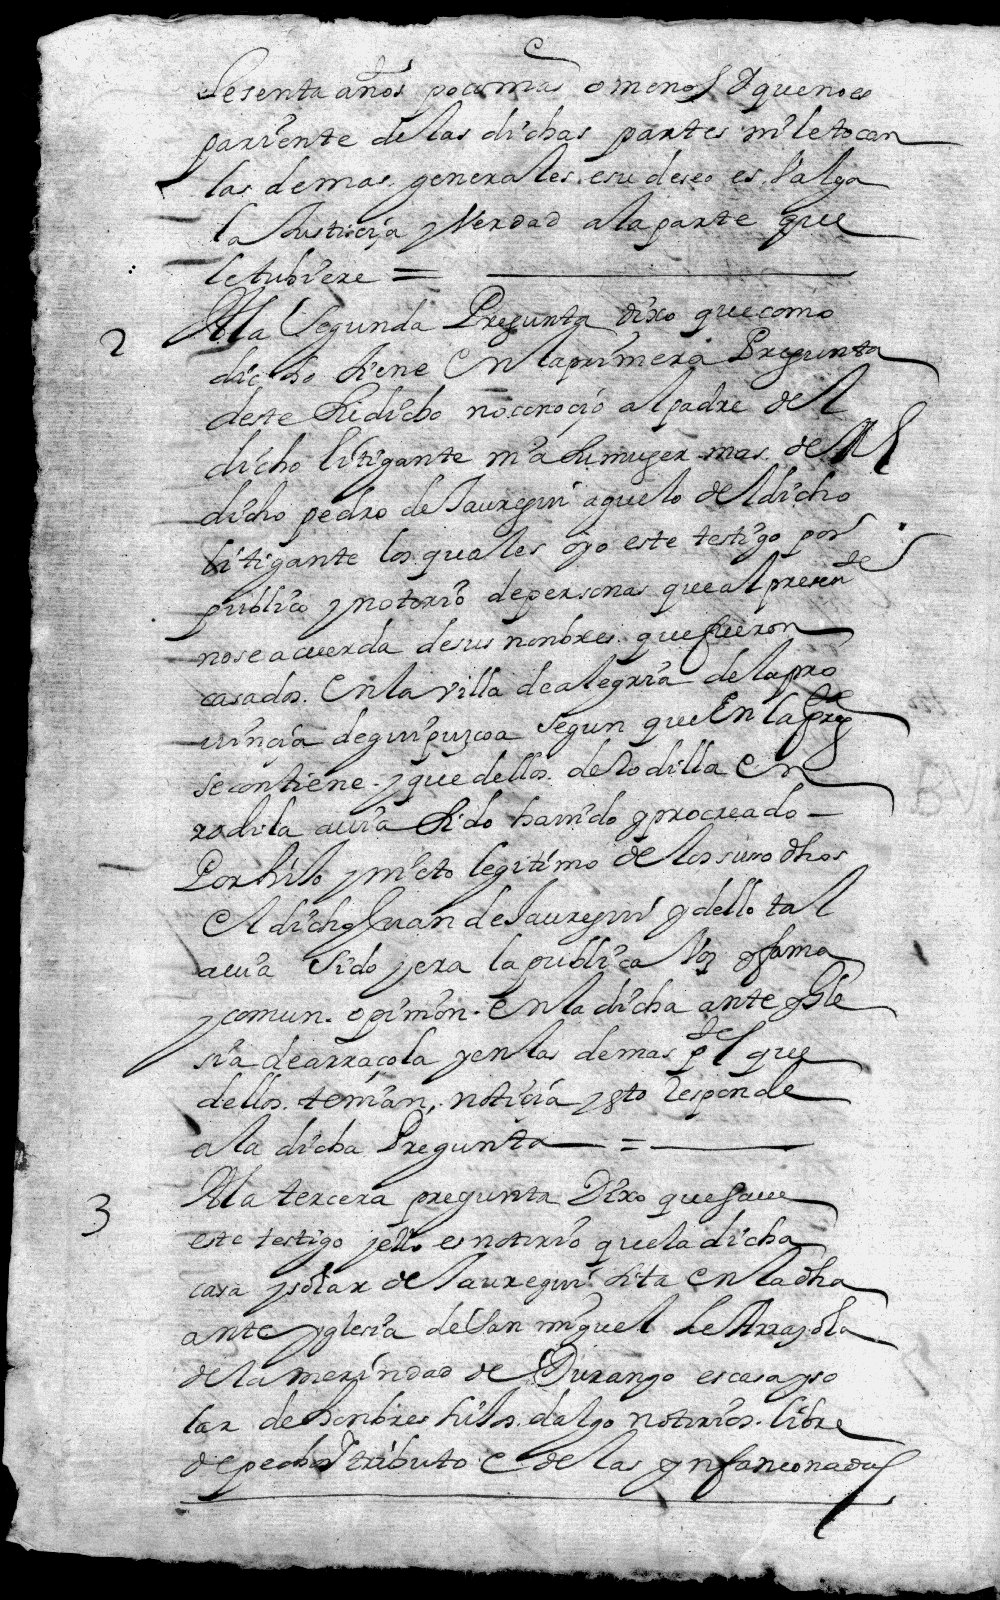 sesenta años poco mas o menos y que no es
pariente de las dichas partes ni le tocan
las demas generales e su deseo es valga
la Justicia y verdad a la parte que
le tubiere =
2 A la segunda Pregunta dixo que como
dicho tiene En la primera Pregunta
deste su dicho no conoçio al padre del
dicho litigante ni a su muger mas del
dicho pedro de Jauregui aguelo del dicho
litigante los quales oyo este testigo por
publico y notorio de personas que al presente
no se acuerda de sus nonbres que fueron
casados En la villa de alegria de la pro
uinçia de guipuzcoa segun que En la preg.ta
se contiene y que dellos de Rodilla En
rodilla auia sido hauido y procreado
Por hijo y nieto legitimo de los suso dhos
El dicho Juan de Jauregui y dello tal
auia sido y era la publica Voz y fama
y comun opinion En la dicha ante ygle
sia de arraçola y en las demas p.tes que
dellos tenian noticia y esto Responde
a la dicha Pregunta =
3 A la tercera pregunta Dixo que saue
este testigo y ello es notorio que la dicha
casa y solar de Jauregui sita En la dha
ante yglesia de San miguel de Arraçola
de la merindad de Durango es casa y so
lar de honbres hijos dalgo notorios libre
de pecho y tributo E de las ynfançonadas